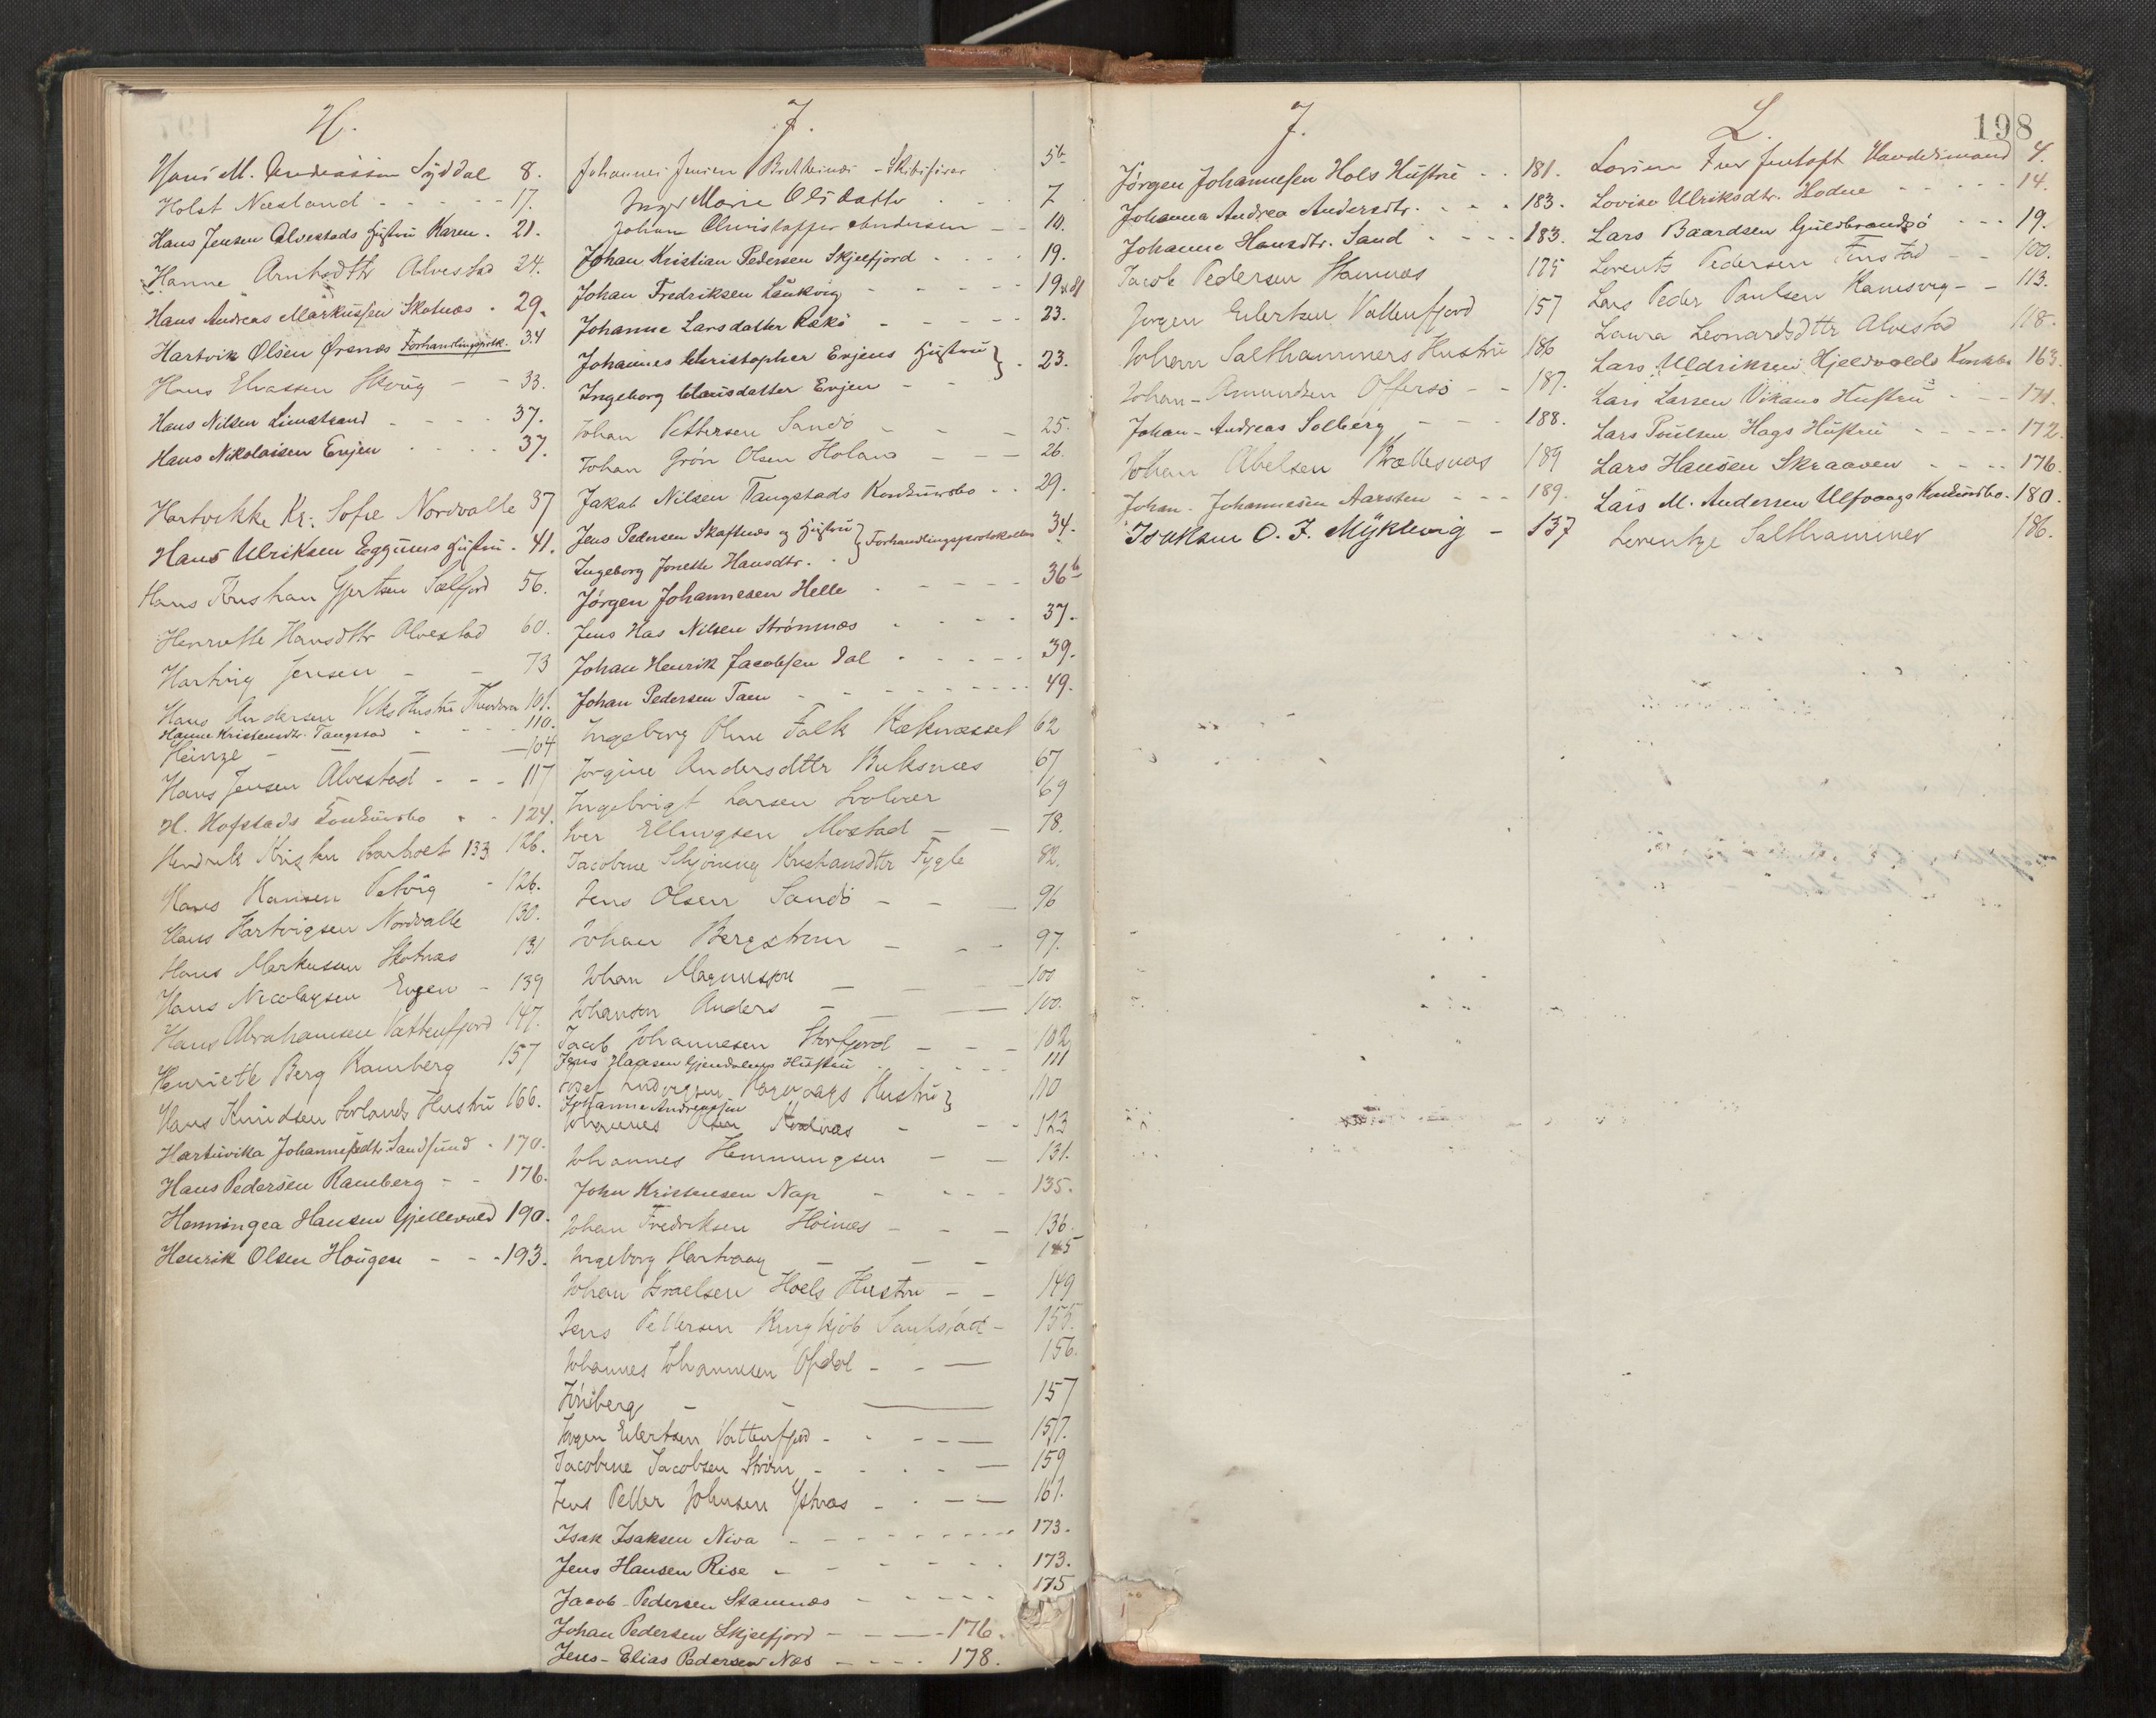 H.
Hans M. Andreassen Syddal 8.
Holst Næsland - - - - 17.
Hans Jensen Alvestads Hustru Karen. 21.
Hanne Arntsdttr Alvestad 24.
Hans Andreas Markussen Skotnæs . 29.
Hartvik Olsen Ørsnæs Forhandlingsprtk. 34
Hans Eliassen - - 33.
Hans Nilsen Limstrand - - - . 37.
Hans Nikolaisen Evjen . . . . 37.
Hartvikke Kr. Sofie Nordvalle 37
Hans Ulriksen Eggums Hustru . 41.
Hans Kristian Gjertsen Sælfjord 56.
Henriette Hansdttr Alvestad 60.
Hartvig Jensen - - 73
Hans Andersen Viks Hustru Theodora 101.
Hanne Kristensdtr. Tangstad - - - 110.
Heinze - - - 104
Hans Jensen Alvestad - - - 117
H. Hofstads Konkursbo - - 124.
Hendrik 133 126.
Hans Hansen Petvig - 126.
Hans Hartvigsen Nordvalle 130.
Hans Markussen Skotnæs 131
Hans Nicolaysen Evjen - 139
Hans Abrahamsen Vatterfjord 147.
Henriette Berg Ramberg 157
Hans Knudsen Sørlands Hustru 166.
Hartuvika Johannesdtr. Sandsund . 170.
Hans Pedersen Ramberg - - 176.
Henningea Hansen Gjellevold 190.
Henrik Olsen Hougen - - - 193.
J.
Johannes Jensen Brettesnæs - Skibsfører 5b
Inger Marie Olsdatter . . . 7
Johan Christopher Andersen - - 10.
Johan Kristian Pedersen Skjelfjord - - - . 19.
Johan Fredriksen Laukvig - - - - - 19
Johanne Larsdatter Rækø - - - - . 23.
Johannes Christopher Evjens Hustru } . 23.
Ingeborg Clausdatter Evjen - -
Johan Pettersen Sandø - - - 25.
Johan Grøn Olsen Holand - - - 26.
Jakob Nilsen Tangstads Konkursbo . . 29.
Jens Pedersen Skaftnæs og Hustru } Forhandlingsprotokollen 34.
Ingeborg Jonette Hansdtr. .
Jørgen Johannesen Helle . . - - - 36b
Jens Has Nilsen Strømnæs . . . . 37.
Johan Henrik Jacobsen Dal . - - - - 39.
Johan Pedersen Taen - - - - - - - 49.
Ingeborg Oline Falk Rækmæssel 62
Jørgine Andersdttr Buksnæs 67
Ingebrigt Larsen Svolvær 69
Iver Ellingsen Mostad - - 78.
Jacobine Schjønning Kristiansdttr Fygle 82.
Jens Olsen Sandø - - - 96
Johan Bergstrøm - - - 97.
Johan Magnusson - - - 100
Johanson Anders - - - 100.
Jacob Johannesen Storfjord - - - 102
Jens Hansen Gjendalens Hustru . . . . 111
Ludvigsen Hustru } 110
Johanna Andreassen
Johannes Olsen Kvalnæs - - - 123
Johannes Hemmingsen - - 131.
John Kristensen Nap - - - - 135.
Johan Fredriksen Hoines - - - 136.
Ingeborg Hartvaag - - - 145
Johan Israelsen Hoels Hustru - - 149
Jens Pettersen 155.
Johannes Johannesen Opdal - - - 156.
- - - 157
Jørgen Eilertsen Vatterfjord - - - - 157.
Jacobine Jacobsen Strøm - - . - - 159
Jens Peder Johnsen Ystnæs - . - - 161.
Isak Isaksen Niva - - - - - - - 173.
Jens Hansen Rise - - - - - . 173.
Jacob Pedersen Stamnæs - - - - - 175
Johan Pedersen Skjelfjord - - - - 176.
Jens Elias Pedersen Næs - - - . 178.
J.
Jørgen Johannesen Hols Hustru . . 181.
Johanna Andrea Andersdtr. . - . 183.
Johanne Hansdtr. Sand . - - - 183.
Jacob Pedersen Stamnæs 175
Jørgen Eilertsen Vatterfjord 157
Johan Salthammers Hustru 186
Johan - Amundsen Offersø - - 187.
Johan - Andreas Solberg - - - 188.
Johan Abelsen Brettesnæs 189
Johan - Johannessen Aarsten - - - 189.
Isaksen O. J. Myklevig - 137
198
L.
Handelsmand 4.
Lovise Ulriksdtr. Hodne - - - - - 14.
Lars Baardsen Guldbrandsø - - - 19.
Lorents Pedersen Finstad - - 100.
Lars Peder Paulsen Ramsvig - - 113.
Laura Leonardsdttr Alvestad 118.
Lars Uldriksen Hjeldvolds Konkbo. 163.
Lars Larsen Vikans Hustru . - - 171.
Lars Poulsen Hags Hustru - - - - - 172.
Lars Hansen Skraaven - - - - 176.
Lars M. Andersen Ulfvaags Konkursbo. 180.
Lorentze Salthammer 186.